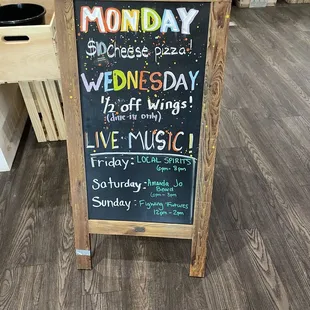 MONDAY
$10 cheese pizza
WEDNESDAY
½ off Wings!
(dine-in only)
LIVE MUSIC!
Friday: LOCAL SPIRITS
6pm-8pm
Saturday- Amanda Jo
Band
6pm-8pm
Sunday: Fighting Futures
12pm-2pm